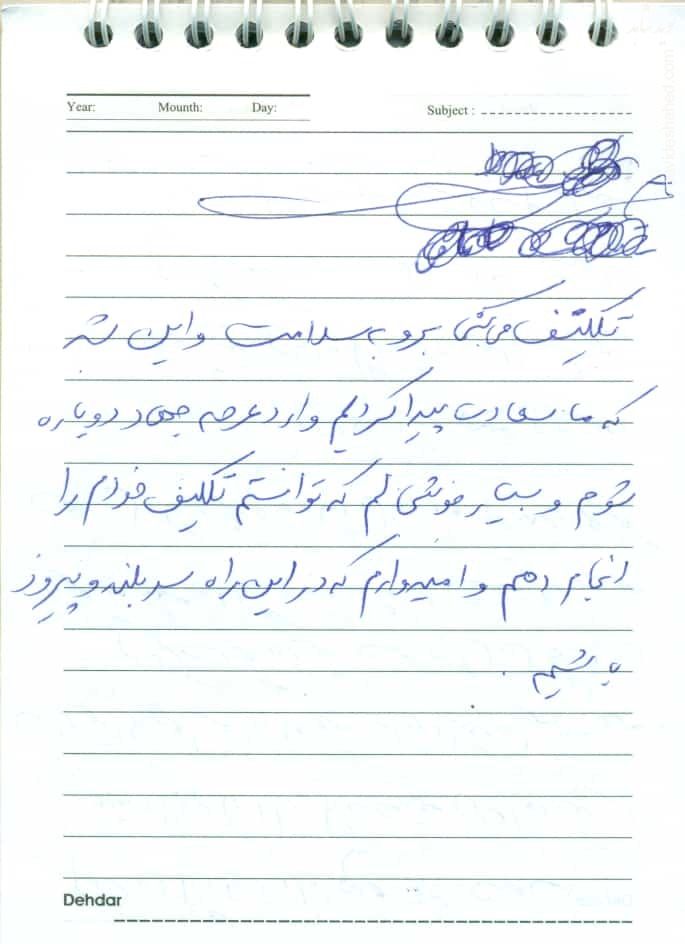 Year: Mounth: Day: Subject :
تکلیف می‌کنی برو به سلامت و این شد
که ما سعادت پیدا کردیم وارد عرصه جهاد دوباره
شوم و بسیار خوشحالم که توانستم تکلیف خودم را
انجام دهم و امیدوارم که در این راه سربلند و پیروز
باشیم .
Dehdar